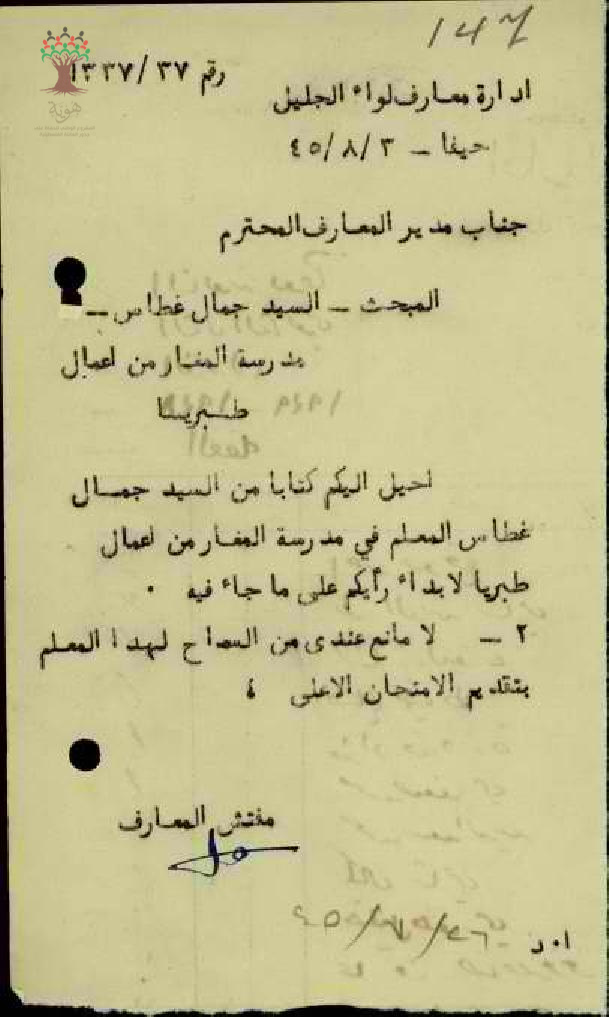 147
رقم ١٣٣٧/٣٧
ادارة معارف لواء الجليل
حيفا - ٤٥/٨/٣
جناب مدير المعارف المحترم
المبحث - السيد جمال غطاس -
مدرسة المغار من اعمال
طبريا
احيل اليكم كتابا من السيد جمال
غطاس المعلم في مدرسة المغار من اعمال
طبريا لابداء رأيكم على ما جاء فيه .
٢ - لا مانع عندى من السماح لهذا المعلم
بتقديم الامتحان الاعلى ؛
مفتش المعارف
هوية